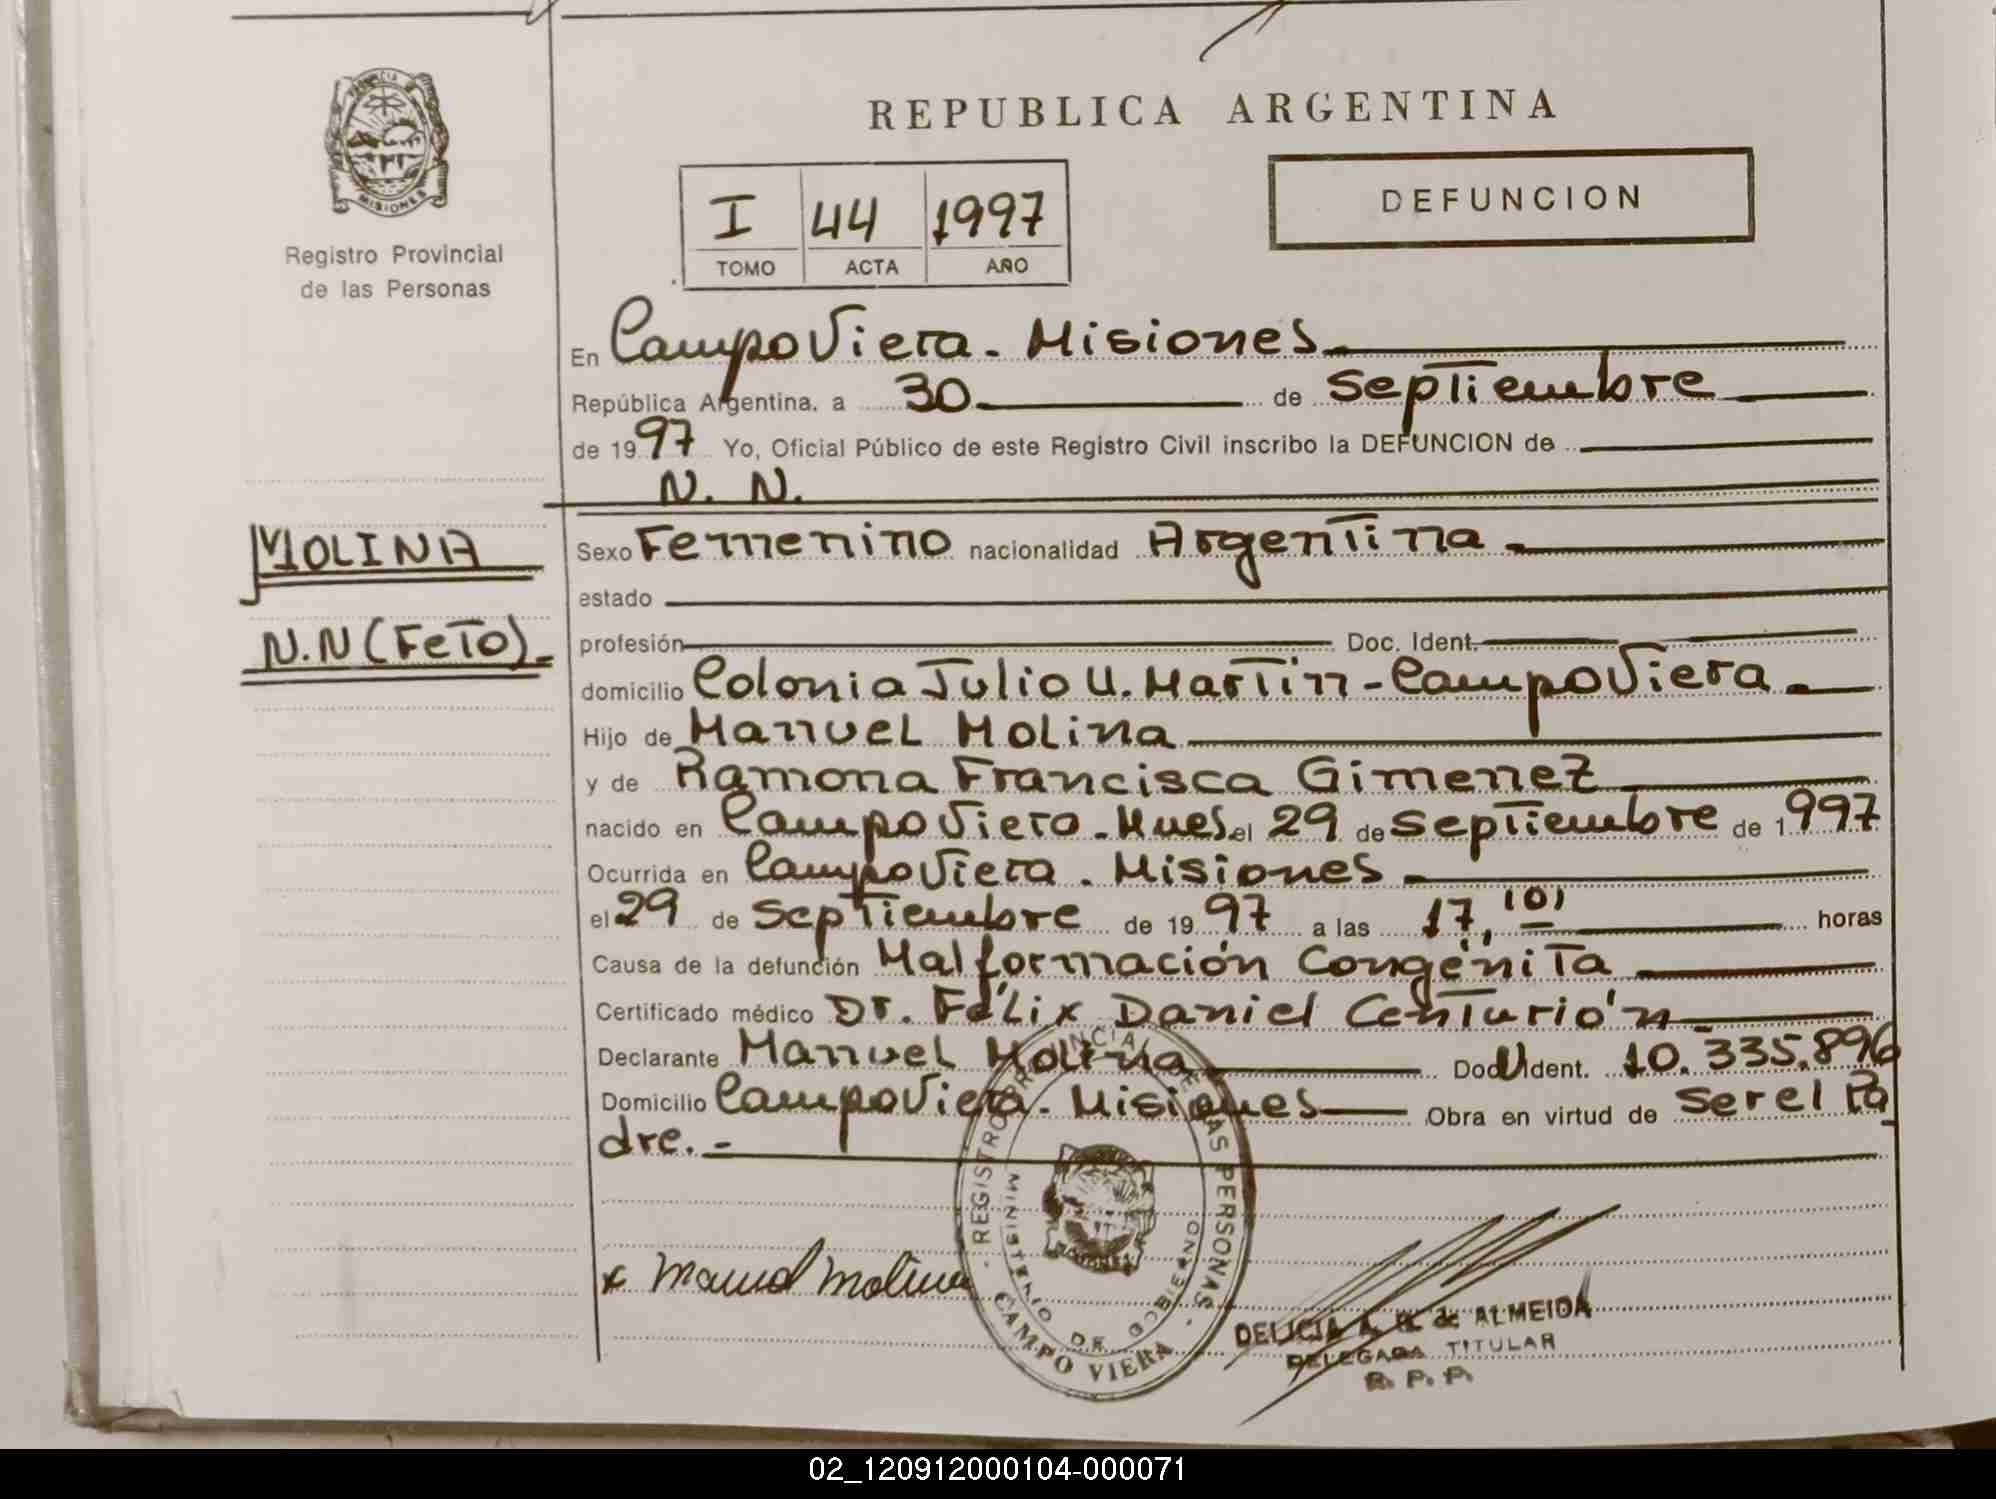 REPUBLICA ARGENTINA
PROVINCIA DE
MISIONES
Registro Provincial
de las Personas
I 44 1997
TOMO ACTA AÑO
DEFUNCION
En Campo Viera - Misiones.
República Argentina, a 30 de Septiembre
de 1997 Yo, Oficial Público de este Registro Civil inscribo la DEFUNCION de
N. N.
MOLINA
N.N (Feto).
Sexo Femenino nacionalidad Argentina.
estado
profesión Doc. Ident.
domicilio Colonia Julio U. Martin - Campo Viera.
Hijo de Manuel Molina
y de Ramona Francisca Gimenez
nacido en Campo Viera - Mnes. el 29 de Septiembre de 1997
Ocurrida en Campo Viera. Misiones.
el 29 de Septiembre de 1997 a las 17,10, horas
Causa de la defunción Malformación Congénita
Certificado médico Dr. Félix Daniel Centurión
Declarante Manuel Molina Doc U Ident. 10.335.896
Domicilio Campo Viera - Misiones Obra en virtud de Ser el Pa
dre. -
x Manuel Molina
- REGISTRO PROVINCIAL DE LAS PERSONAS -
MINISTERIO DE GOBIERNO
MISIONES
CAMPO VIERA
DELICIA A. de ALMEIDA
DELEGADA TITULAR
R. P. P.
02_120912000104-000071